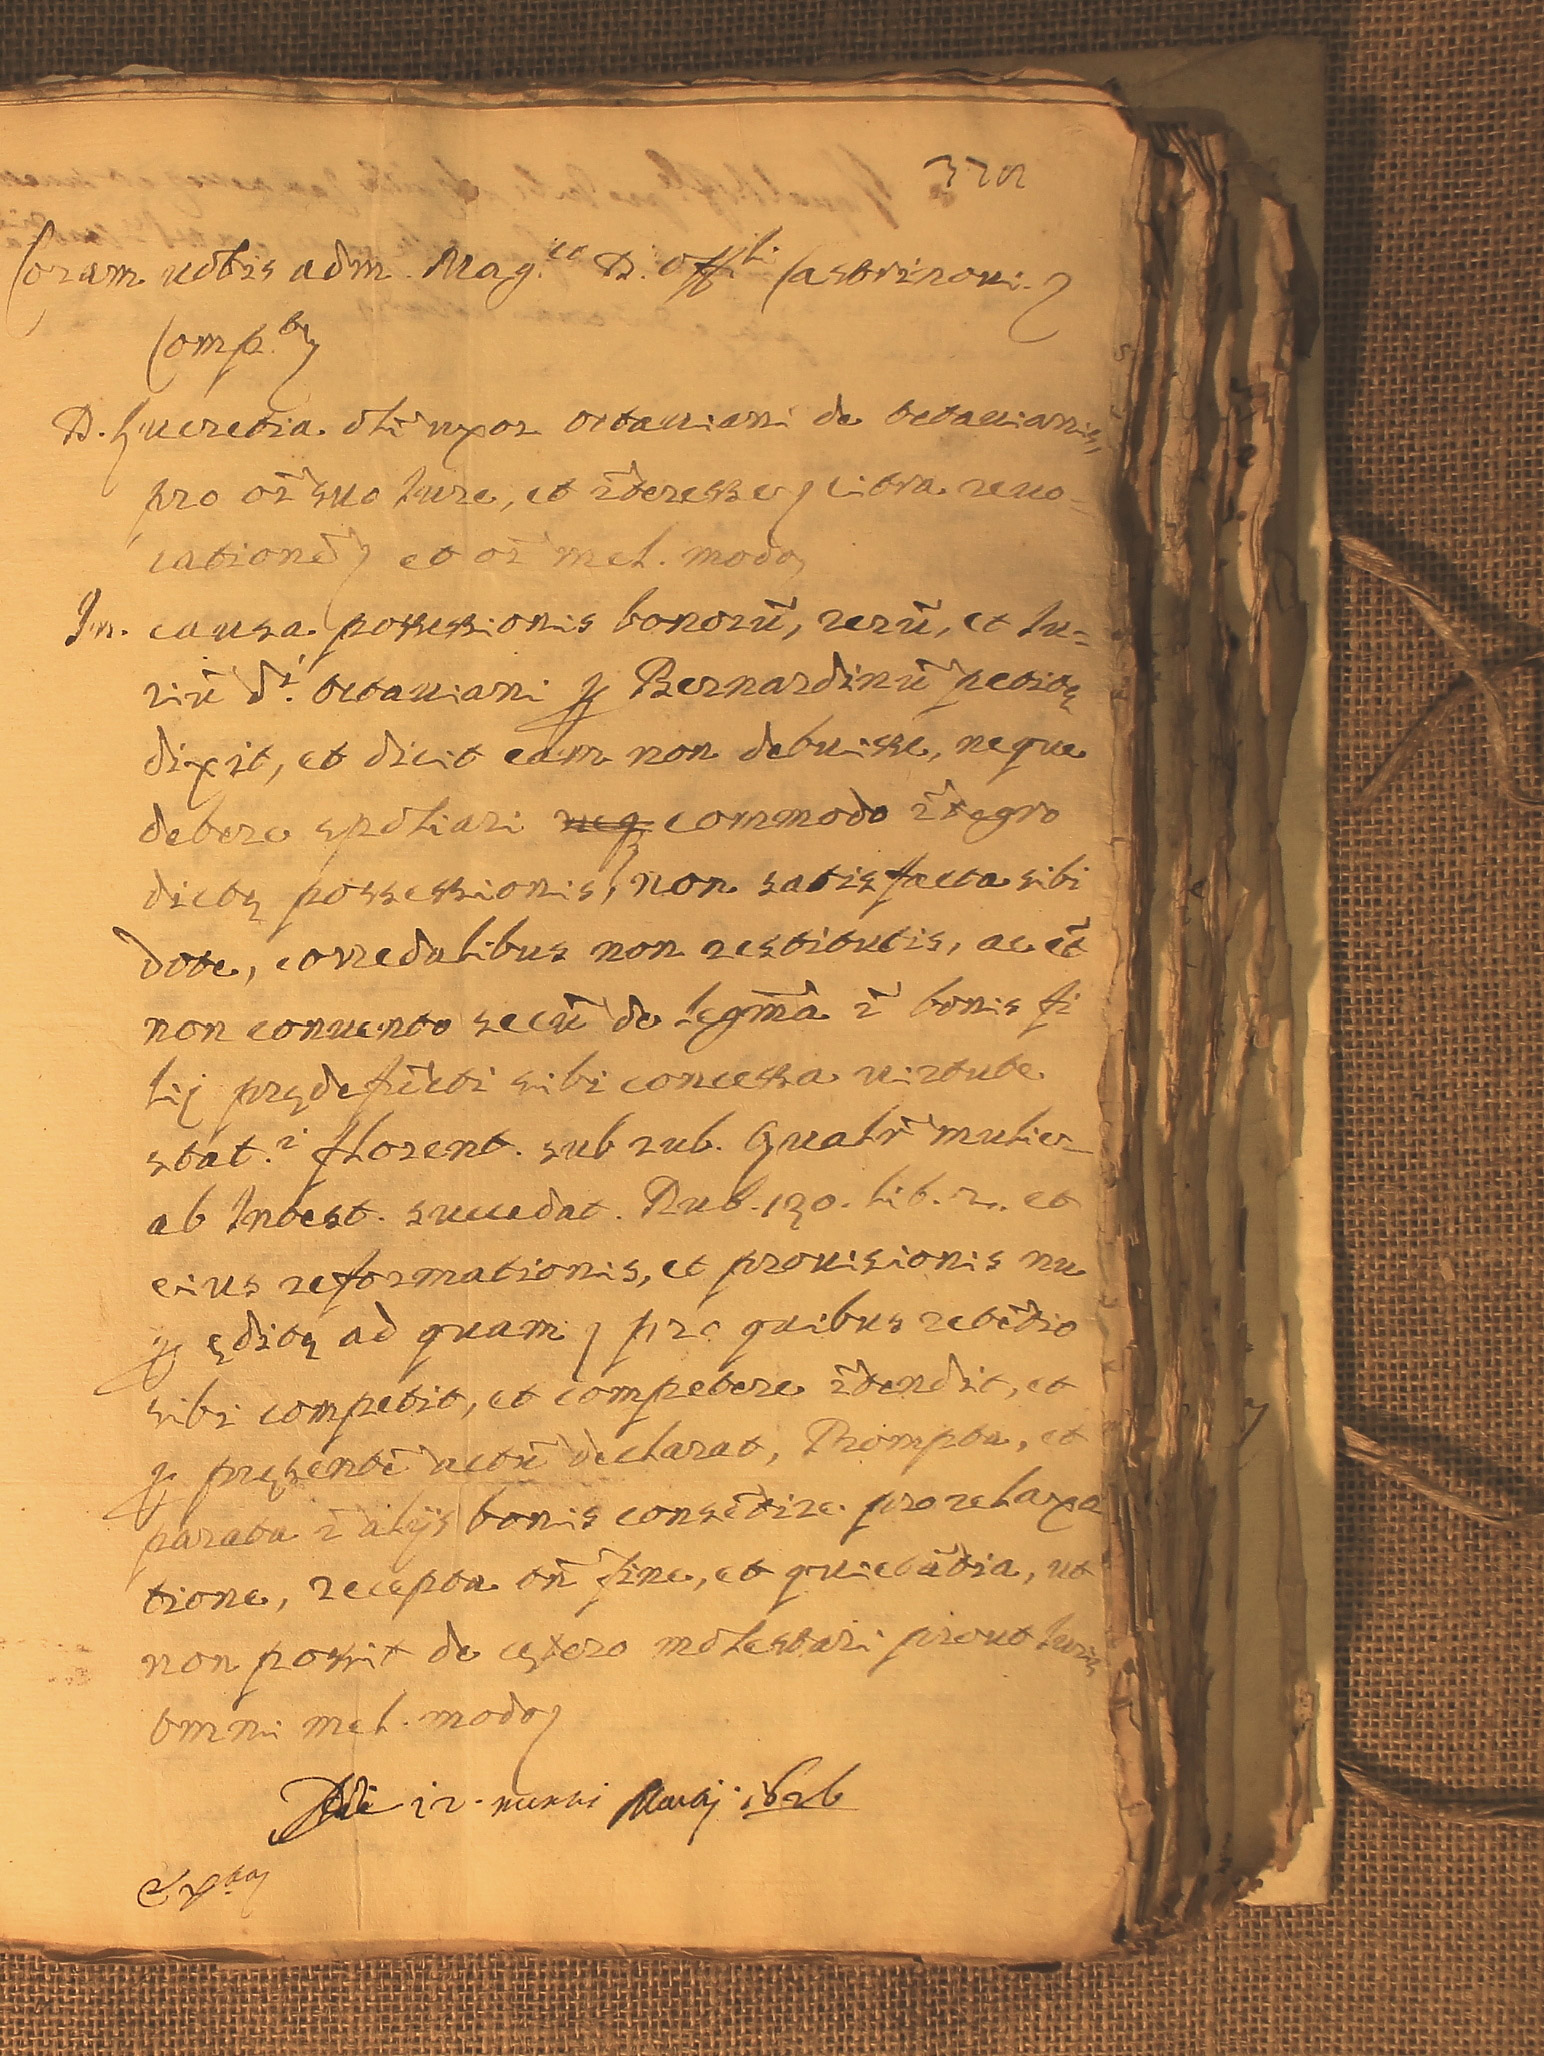 Coram uobis adm. Mag.co D. Offli. Castrinoui.
Comp.
D. Lucretia olĩ uxor octauiani de Octauianis,
pro oĩ suo Iure, et ĩteresse, citra reuo-
cationẽ et oĩ mel. modo
In causa possessionis bonorũ, rerũ, et Iu-
riũ di. Octauiani p Bernardinũ petitę
dixit, et dicit eam non debuisse, neque
debere spoliari neq commodo ĩtegro
dictę possessionis, non satisfacta sibi
dote, corredalibus non restitutis, ac ẽt
non conuento secũ de legma ĩ bonis fi
lij prędefũcti sibi concessa uirtute
stat.i florent. sub rub. Qualr mulier
ab Intest. succedat. Rub. 130. lib. 2. et
eius reformationis, et prouisionis nu
p ęditę ad quam, pro quibus retẽtio
sibi competit, et competere ĩtendit, et
p pręsentẽ actũ declarat, Prompta, et
parata ĩ alijs bonis consẽtire pro relaxa
tione, recepta tñ fine, et quietãtia, ut
non possit de cętero molestari prout Iuris
omni mel. modo
Die 12. mensi Maij 1626